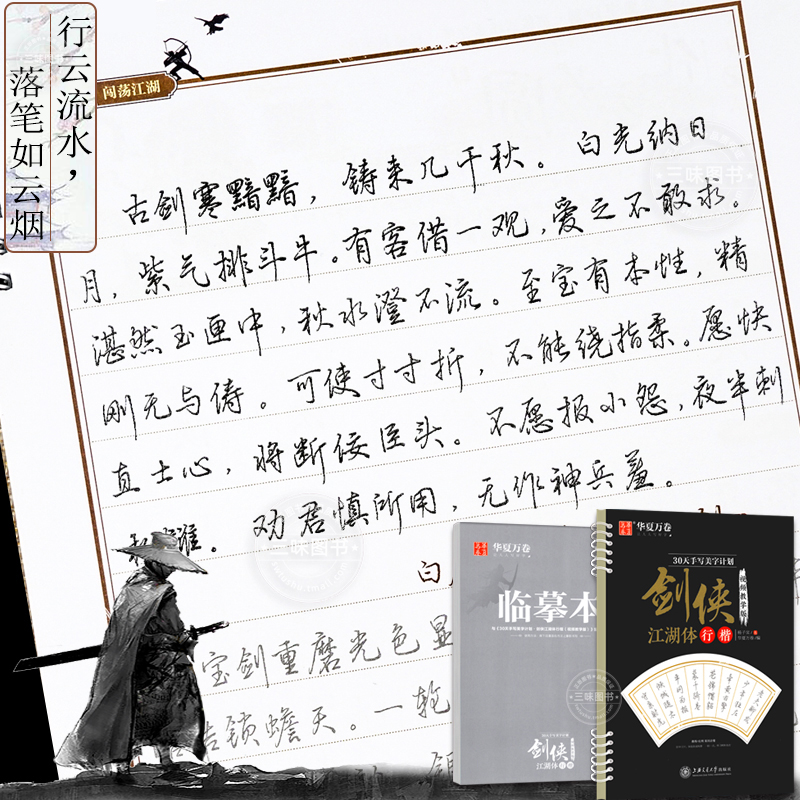 行云流水，
落笔如云烟
闯荡江湖
古剑寒黯黯，铸来几千秋。白光纳日
月，紫气排斗牛。有客借一观，爱之不敢求。
湛然玉匣中，秋水澄不流。至宝有本性，精
刚无与俦。可使寸寸折，不能绕指柔。愿快
直士心，将断佞臣头。不愿报小怨，夜半刺
私雠。劝君慎所用，无作神兵羞。
白
宝剑重磨光色显
锁蟾天。一
三味图书
华夏万卷
临摹本
剑侠
江湖体行楷
华夏万卷
30天手写美字计划
剑侠
视频教学版
江湖体行楷
上海交通大学出版社